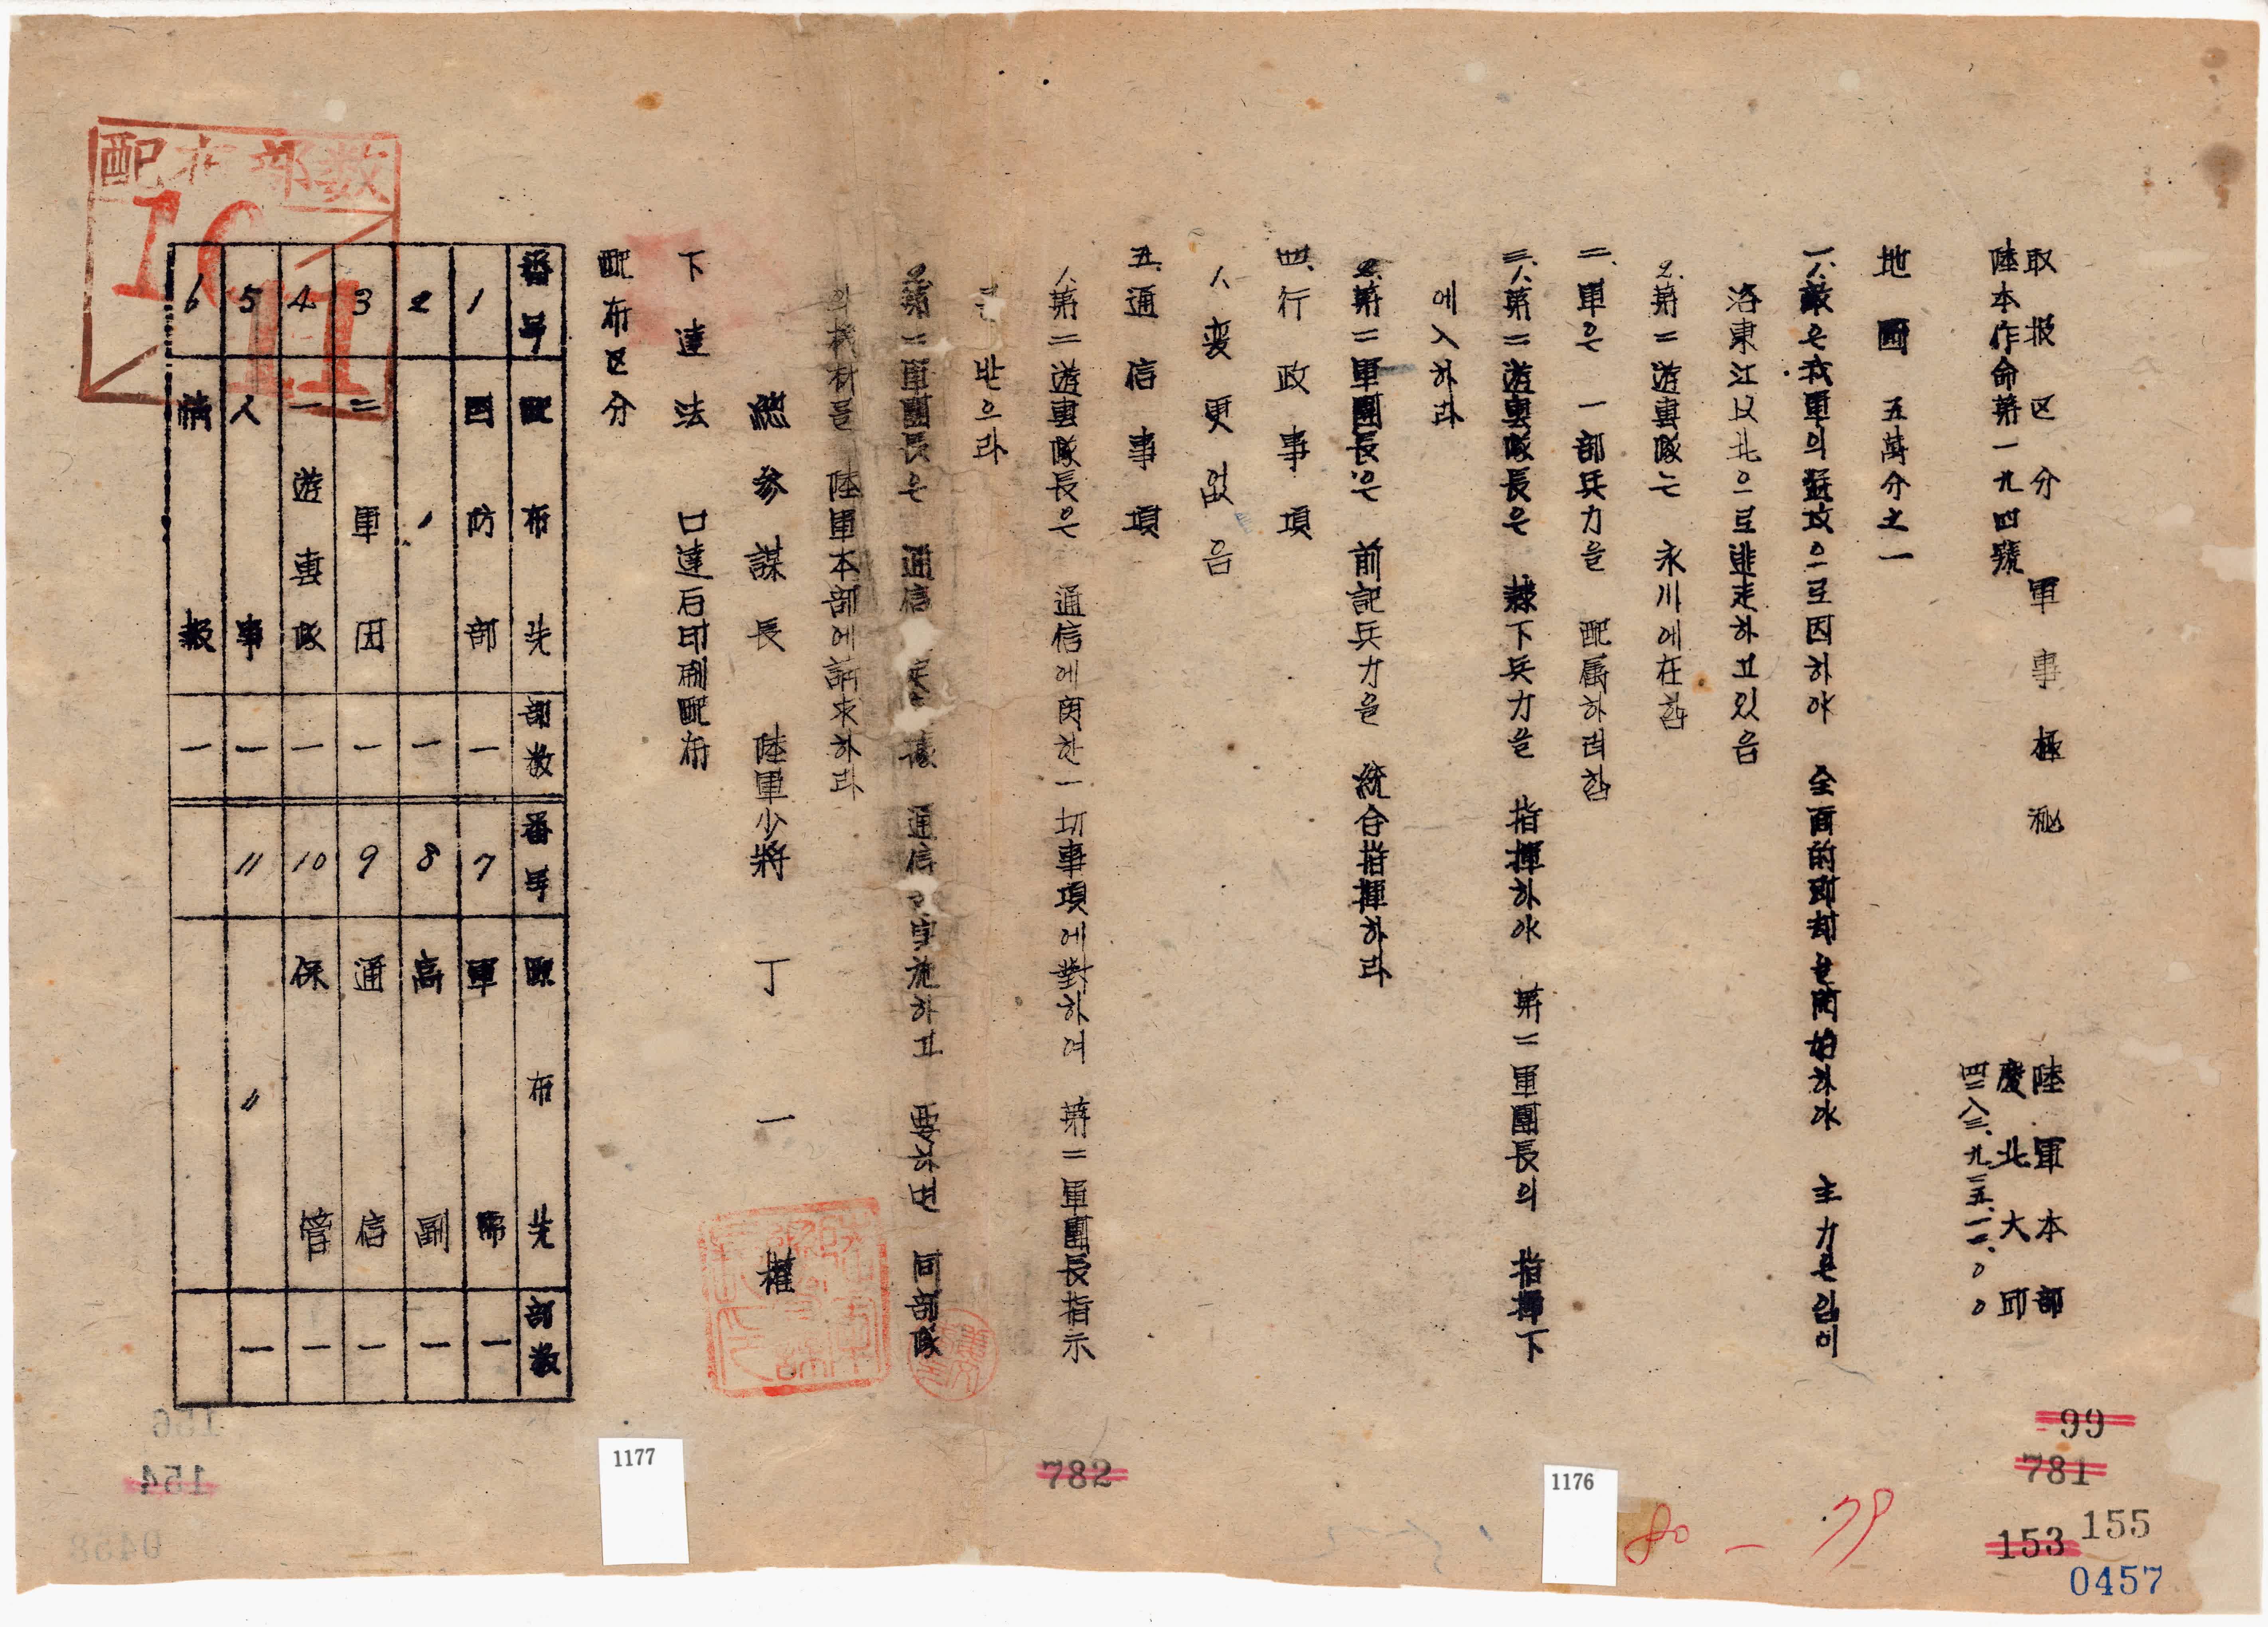 取扱区分 軍事極秘
陸軍本部
陸本作命第一九四號
慶北大邱
四二八三.九.二五.一二.00
地圖 五萬分之一
一.1.敵은我軍의猛攻으로因하야 全面的退却을開始하야 主力은임이
洛東江以北으로逃走하고있음
2.第二遊擊隊는 永川에在함
二.軍은 一部兵力을 配属하려함
三.1.第二遊擊隊長은 隷下兵力을 指揮하야 第二軍團長의 指揮下
에入하라
2.第二軍團長은 前記兵力을 統合指揮하라
四.行政事項
1.変更없음
五.通信事項
1.第二遊擊隊長은 通信에関한一切事項에對하여 第二軍團長指示
받으라
2.第二軍團長은 通信 通信 実施하고 要하면 同部隊
의機材를 陸軍本部에請求하라
總参謀長 陸軍少將 丁一權
下達法 口達后印刷配布
配布区分
番号 配布先 部数 番号 配布先 部数
1 国防部 一 7 軍需 一
2 〃 一 8 高副 一
3 二軍団 一 9 通信 一
4 一遊擊隊 一 10 保管 一
5 人事 一 11 〃 一
6 情報 一
配布部数
11
1177
782
1176
80 - 79
99
781
153
155
0457